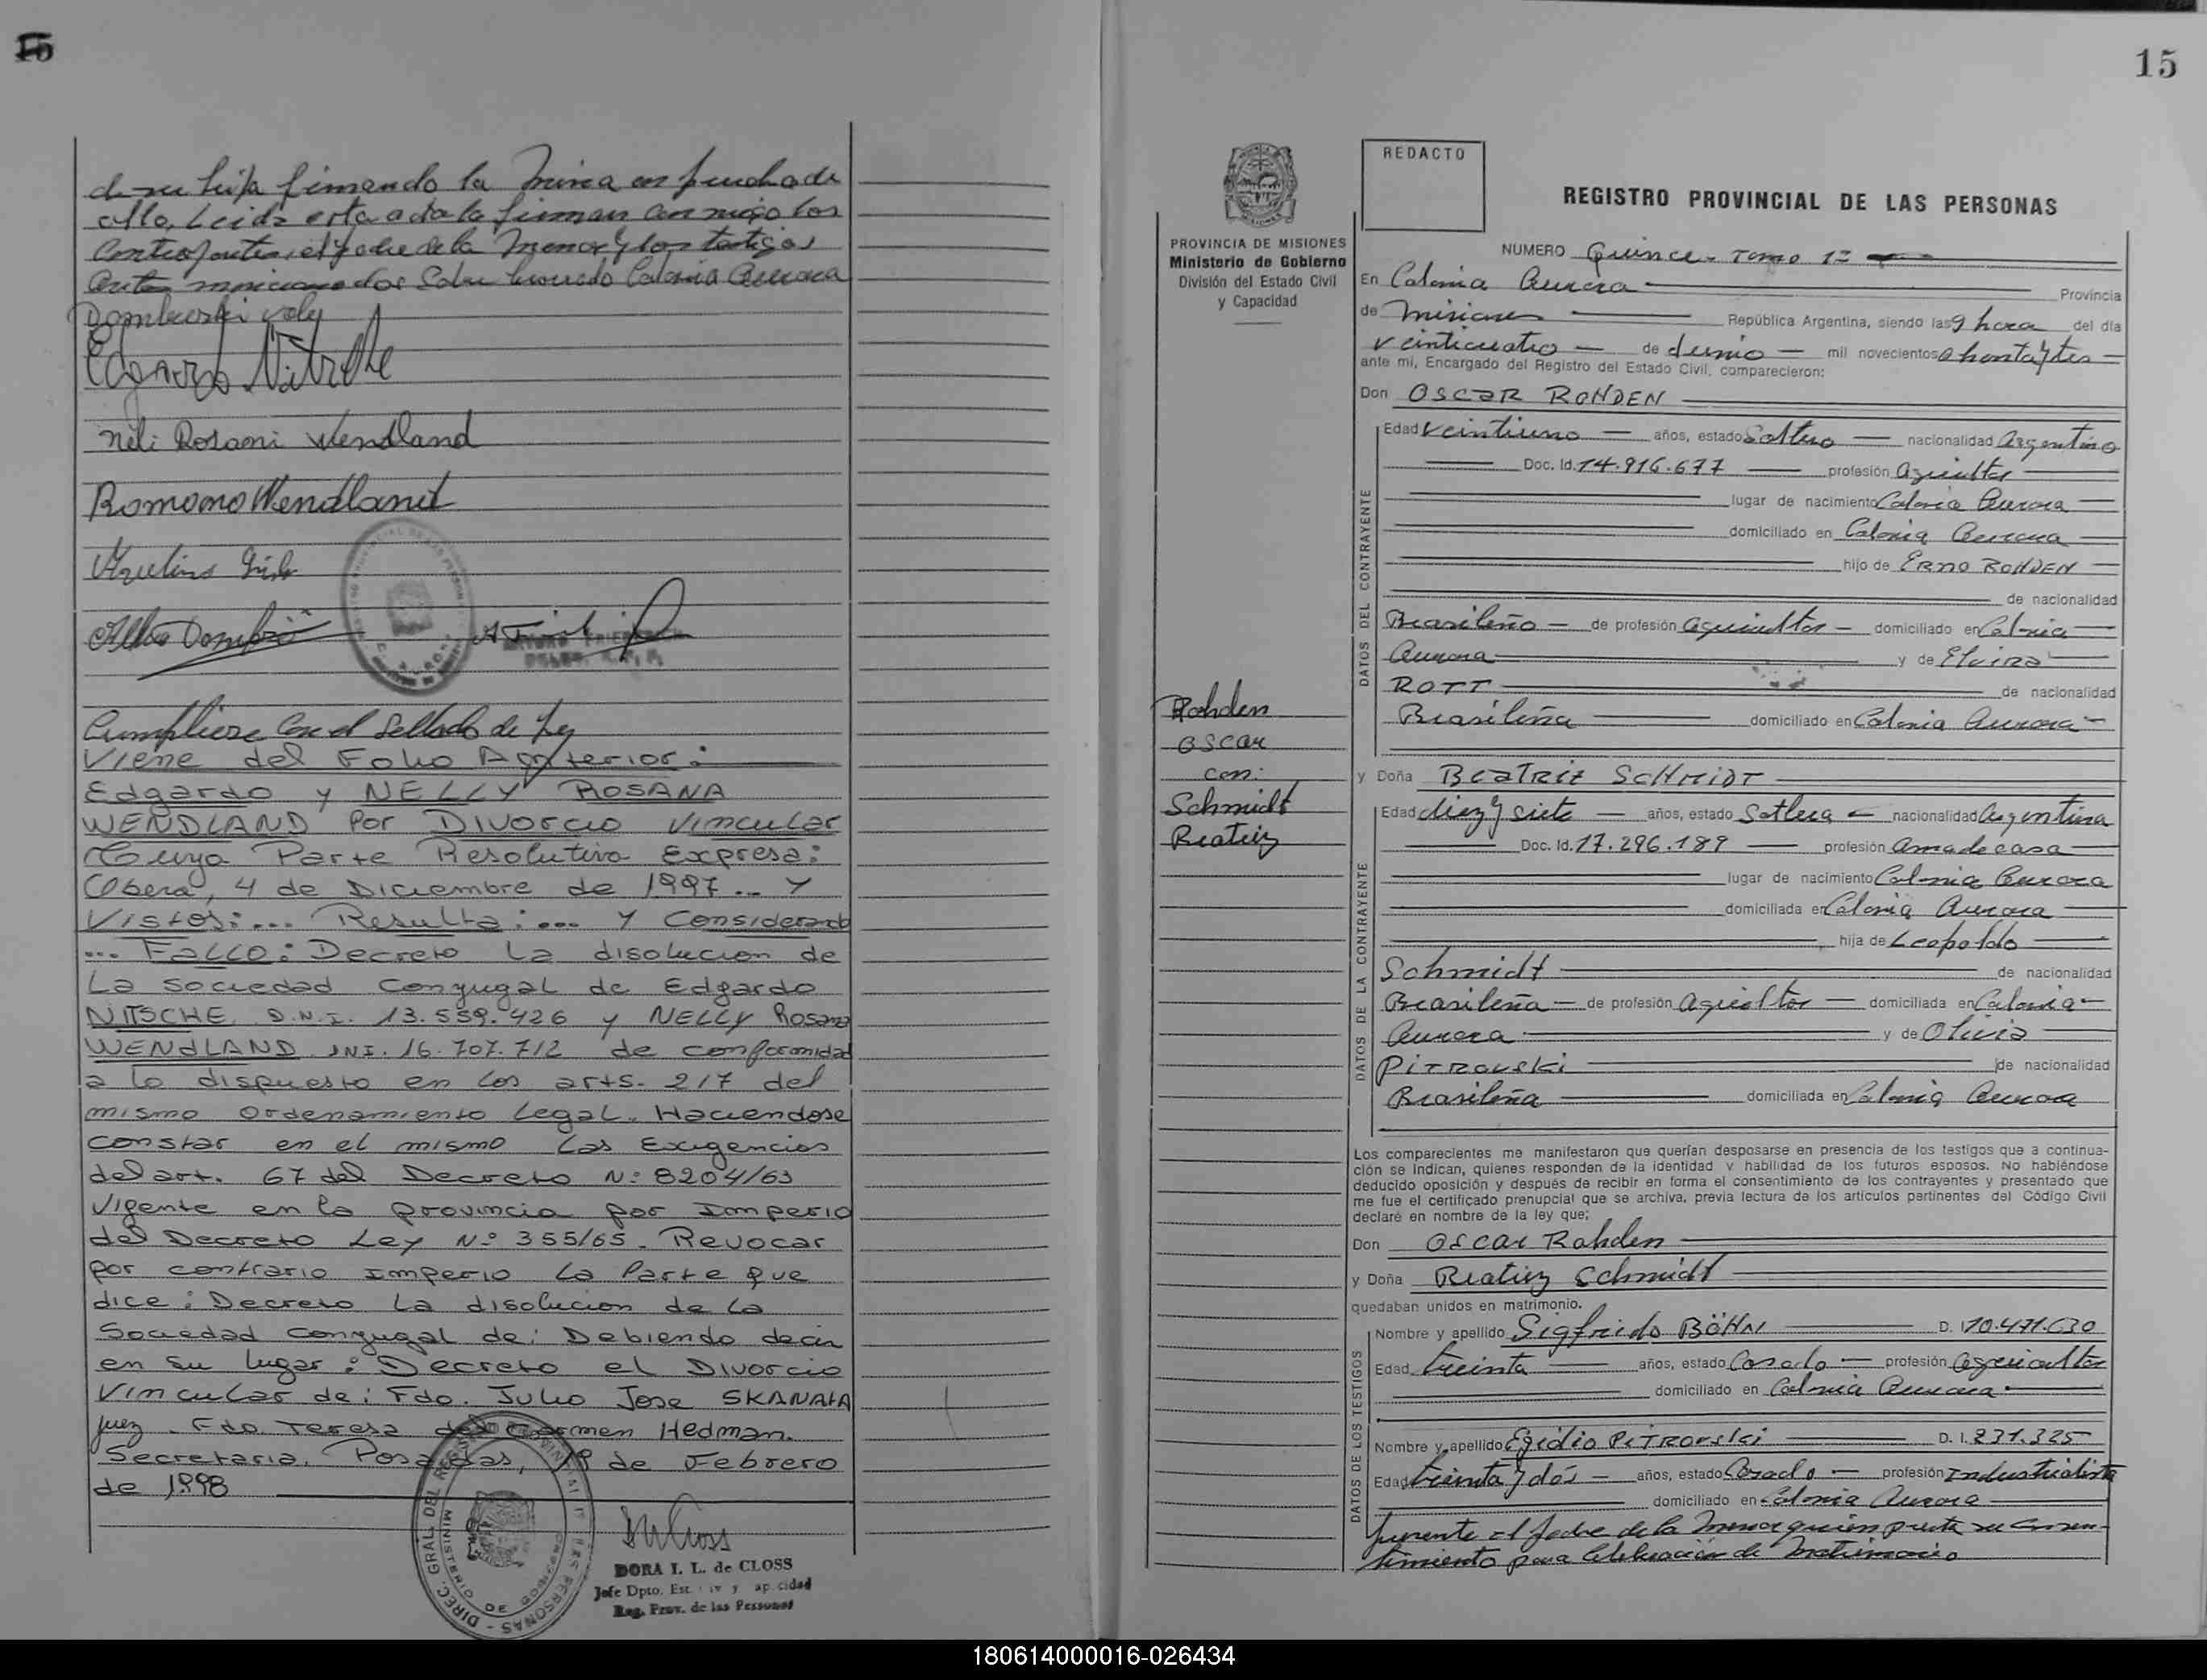 15
de su hija firmando la misma en prueba de
ello, Leida esta acta la firman conmigo los
Contrayentes, el padre de la Menor y los testigos
antes mencionados Sobre borrado Colonia Aurora
Neli Rosani Wendland
Romono Wendland
Cumpliose Con el Sellado de Ley
Viene del Folio Anterior:
Edgardo y NELLY ROSANA
WENDLAND Por DIVORCIO Vincular
Cuya Parte Resolutiva Expresa:
Obera, 4 de Diciembre de 1997... Y
Vistos:... Resulta:... y Considerando
... FALLO: Decreto La disolucion de
La Sociedad Conyugal de Edgardo
NITSCHE D.N.I. 13.559.426 y NELLY Rosana
WENDLAND DNI. 16.707.712 de conformidad
a lo dispuesto en los arts. 217 del
mismo Ordenamiento Legal. Haciendose
constar en el mismo las Exigencias
del art. 67 del Decreto Nº 8204/63
Vigente en la provincia por Imperio
del Decreto Ley Nº 355/65. Revocar
por contrario Imperio la Parte que
dice: Decreto La disolucion de la
Sociedad conyugal de: Debiendo decir
en su lugar: Decreto el Divorcio
Vincular de: Fdo. Julio Jose SKANATA
Juez. Fdo Teresa del Carmen Hedman.
Secretaria. Posadas, 19 de Febrero
de 1998
DORA I. L. de CLOSS
Jefe Dpto. Est. Civ y Capacidad
Reg. Prov. de las Personas
15
REDACTO
REGISTRO PROVINCIAL DE LAS PERSONAS
PROVINCIA DE MISIONES
Ministerio de Gobierno
División del Estado Civil
y Capacidad
NUMERO Quince - Tomo 1º
En Colonia Aurora Provincia
de Misiones República Argentina, siendo las 9 hora del día
veinticuatro de Junio mil novecientos ohentaytres
ante mi, Encargado del Registro del Estado Civil, comparecieron:
Don OSCAR ROHDEN
DATOS DEL CONTRAYENTE
Edad Veintiuno años, estado Soltero nacionalidad Argentino
Doc. Id. 14.916.677 profesión Agricultor
lugar de nacimiento Colonia Aurora
domiciliado en Colonia Aurora
hijo de ERNO ROHDEN
de nacionalidad
Brasileño de profesión agricultor domiciliado en Colonia
Aurora y de Elvira
ROTT de nacionalidad
Brasileña domiciliado en Colonia Aurora
Rohden
Oscar
con:
Schmidt
Beatriz
y Doña BEATRIZ SCHMIDT
DATOS DE LA CONTRAYENTE
Edad diez y siete años, estado Soltera nacionalidad Argentina
Doc. Id. 17.296.189 profesión Ama de casa
lugar de nacimiento Colonia Aurora
domiciliada en Colonia Aurora
hija de Leopoldo
Schmidt de nacionalidad
Brasileña de profesión agricultor domiciliada en Colonia
Aurora y de Olivia
Pitrovski de nacionalidad
Brasileña domiciliada en Colonia Aurora
Los comparecientes me manifestaron que querían desposarse en presencia de los testigos que a continua-
ción se indican, quienes responden de la identidad y habilidad de los futuros esposos. No habiéndose
deducido oposición y después de recibir en forma el consentimiento de los contrayentes y presentado que
me fue el certificado prenupcial que se archiva, previa lectura de los artículos pertinentes del Código Civil
declaré en nombre de la ley que;
Don Oscar Rohden
y Doña Beatriz Schmidt
quedaban unidos en matrimonio.
DATOS DE LOS TESTIGOS
Nombre y apellido Sigfrido BÖHN D. I 10.471.630
Edad treinta años, estado Casado profesión Agricultor
domiciliado en Colonia Aurora
Nombre y apellido Egidio PITROVSKI D. I. 231.325
Edad treinta y dos años, estado Casado profesión Industrialista
domiciliado en Colonia Aurora
Presente el padre de la Menor quien presta su Consen-
timiento para Celebración de Matrimonio
180614000016-026434